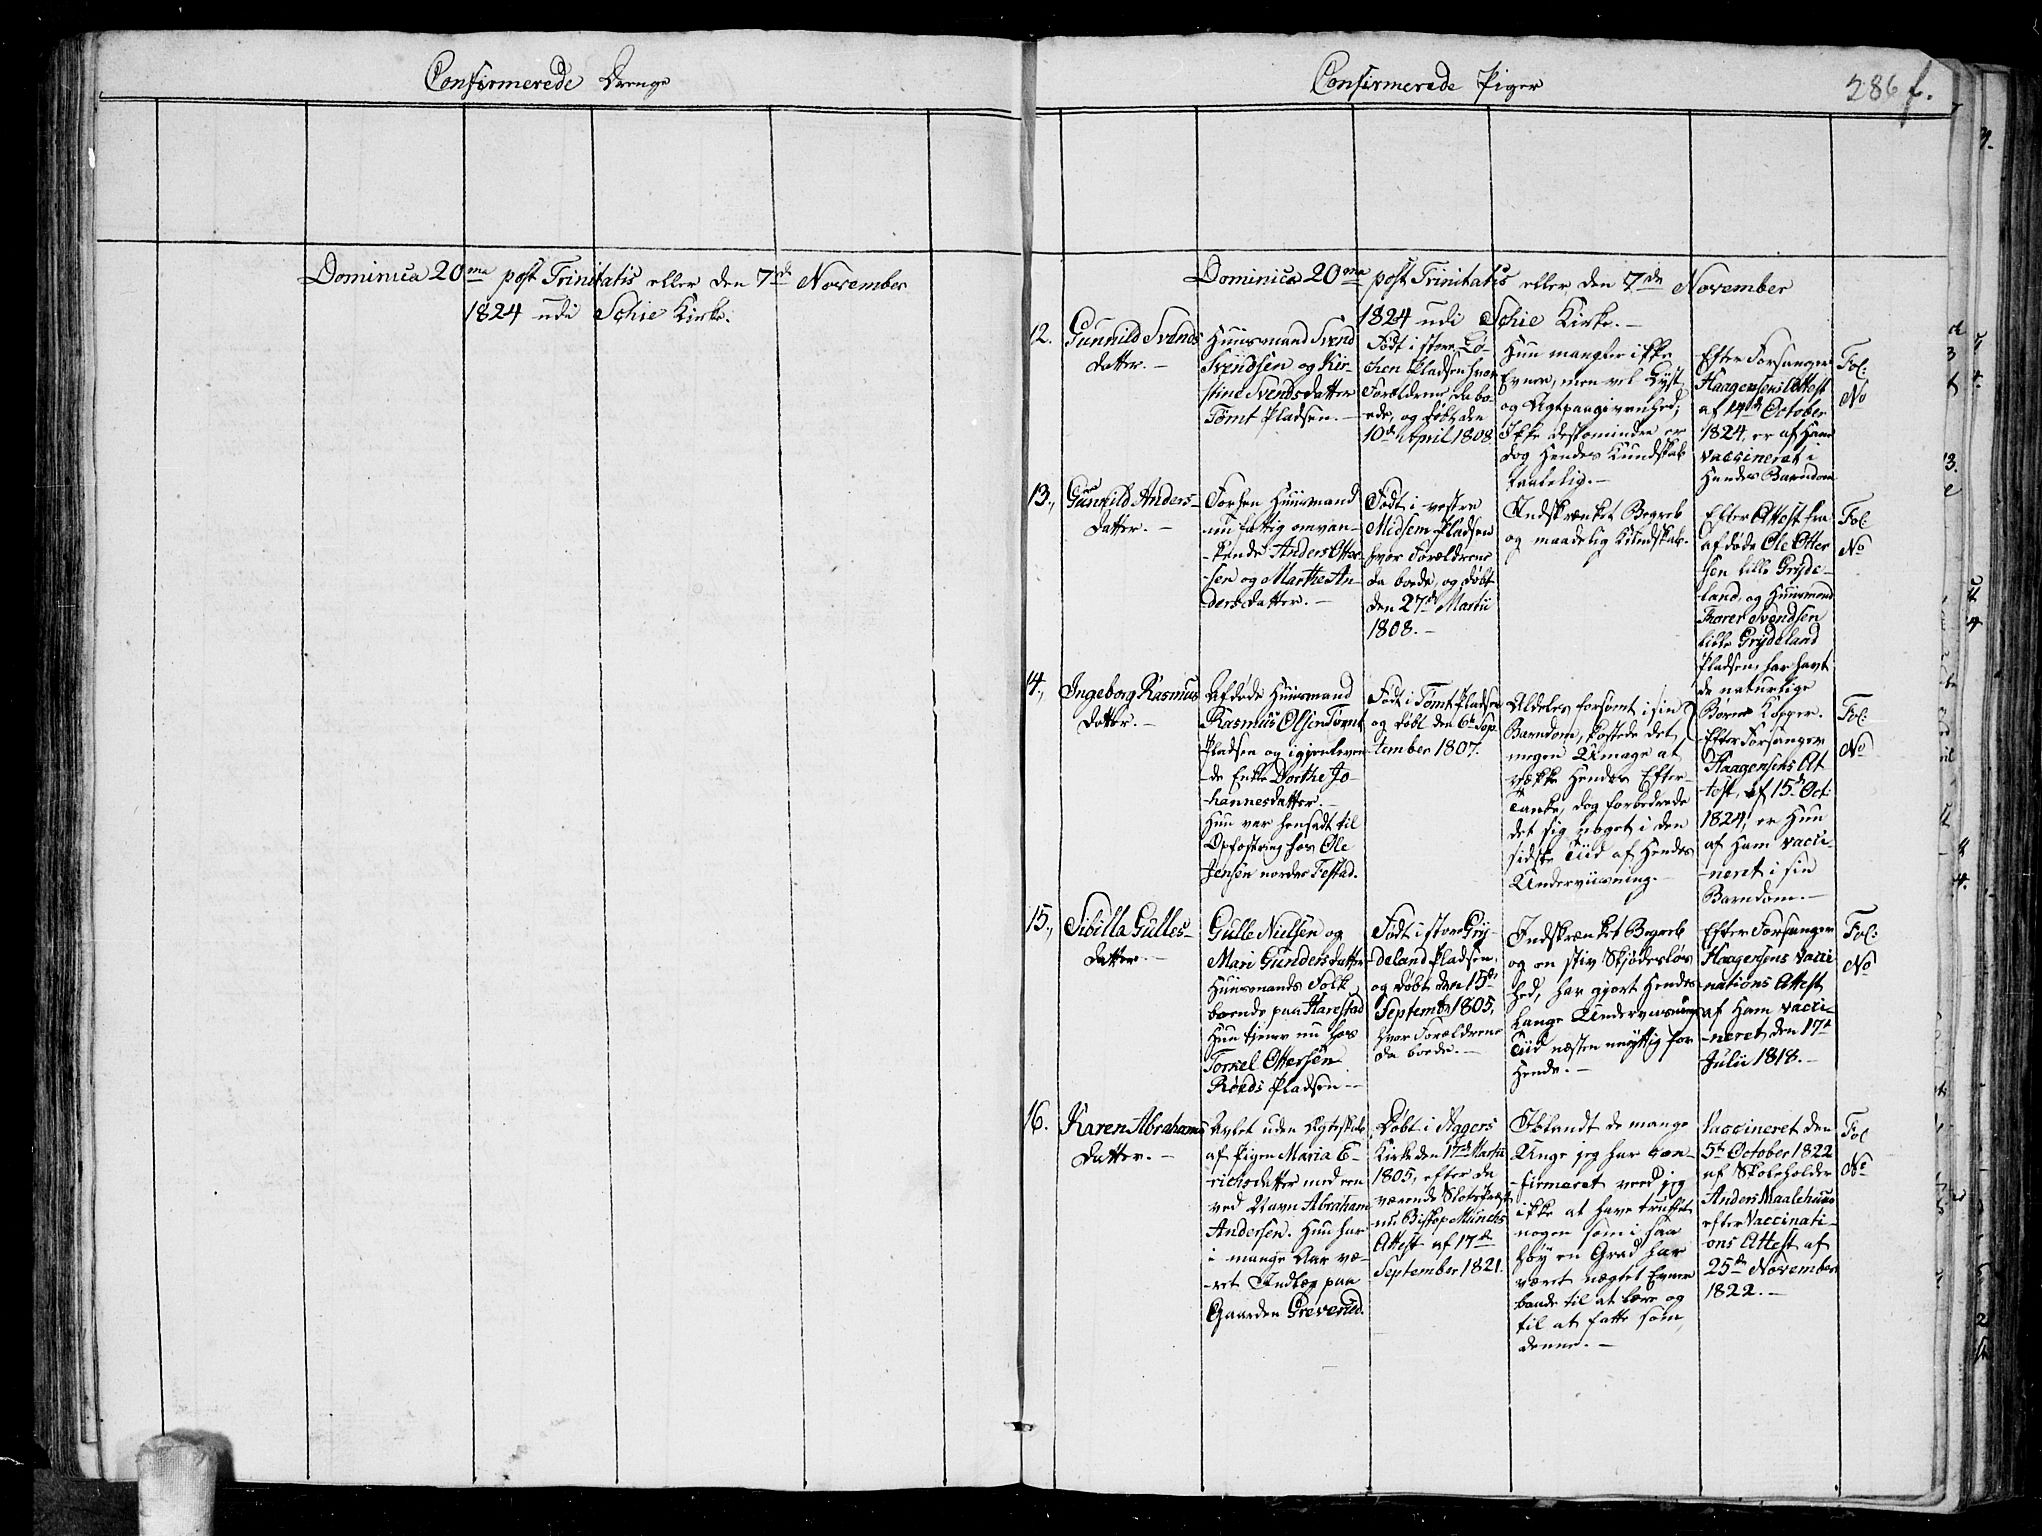 Confirmerede Drenge
Dominica 20ma post Trinitatis eller den 7de November
1824 udi Schie Kirke.
Confirmerede Piger
286 f.
Dominica 20ma post Trinitatis eller den 7de November
1824 udi Schie Kirke.
12.
Gunnild Svends
datter.
Huusmand Svend
Svendsen og Kir-
stine Svendsdatter
Tømt Pladsen.
Født i store Lø-
ken Pladsen hvor
Forældrene da bo-
ede, og døbt den
10de April 1808.
Hun mangler ikke
Evner, men vel Lyst
og Agtpaagivenhed;
Ikke destomindre er
dog Hendes Kundskab
taalelig.
Efter Forsanger
Haagensens Attest
af 14de October
1824, er af Ham
vaccineret i
Hendes Barndom
Fol:
No
13.
Gunnild Anders-
datter.
Forhen Huusmand
nu fattig omvan-
kende Anders Otter-
sen og Marthe An-
dersdatter.
Født i vestre
Midsem Pladsen
hvor Forældrene
da boede, og døbt
den 27de Martii
1808.
Indskrænket Begreb
og maadelig Kundskab.
Efter Attest fra
afdøde Ole Otter
sen lille Gryde-
land, og Huusmand
Thorer Svendsen
lille Grydeland
Pladsen, har havt
de naturlige
Børne Kopper.
Fol:
No
14.
Ingeborg Rasmus
datter.
Afdøde Huusmand
Rasmus Olsen Tømt
Pladsen og igjenleven
de Enke Dorthe Jo-
hannesdatter.
Hun var hensadt til
Opfostring hos Ole
Jensen nordre Festad.
Født i Tømt Pladsen
og døbt den 6te Sep-
tember 1807.
Aldeles forsømt i sin
Barndom, kostede det
megen Umage at
vække Hendes Efter-
tanke, dog forbedrede
det sig noget i den
sidste Tiid af Hendes
Underviisning.
Efter Forsanger
Haagensens At
test, af 15de Oct:
1824, er Hun
af Ham vacci-
neret i sin
Barndom.
Fol:
No
15.
Sibilla Gulles-
datter.
Gulle Nielsen og
Mari Gundersdatter
Huusmands Folk
boende paa Harestad
Hun tjener nu hos
Torkel Ottersen
Røeds Pladsen
Født i store Gry-
deland Pladsen,
og døbt den 15de
Septembr 1805,
hvor Forældrene
da boede.
Indskrænket Begreb
og en stiv Skjødesløs
hed, har gjort Hendes
lange Underviisnings
Tiid næsten unyttig for
Hende.
Efter Forsanger
Haagensens Vacci
nations Attest
af Ham vacci-
neret den 17de
Julii 1818.
Fol:
No
16.
Karen Abrahams
datter.
Avlet uden Ægteskab
af Pigen Maria E-
richsdatter med een
ved Navn Abraham
Andersen. Hun har
i mange Aar væ-
ret Indlæg paa
Gaarden Greverud.
Døbt i Aggers
Kirke den 17de Martii
1805, efter da
værende Slotspræst
nu Biskop Munchs
Attest af 17de
September 1821.
Iblandt de mange
Unge jeg har con-
firmeret veed jeg
ikke at have truffet
nogen som i saa
høy en Grad har
været nægtet Evner
baade til at lære og
til at fatte som
denne.
Vaccineret den
5te October 1822
af Skoleholder
Anders Maalehuus
efter Vaccinati-
ons Attest af
25de November
1822.
Fol
No